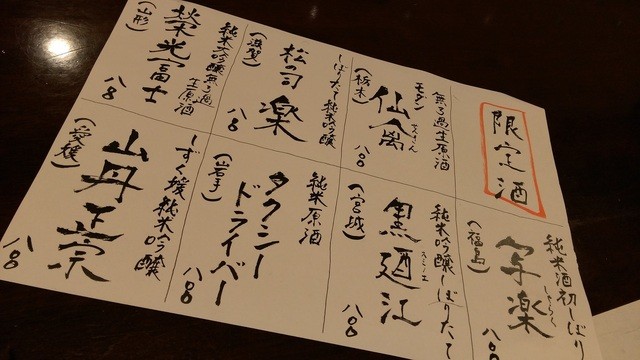 限定酒
無ろ過生原酒
モダン
仙禽
せんきん
(栃木)
八〇
しぼりたて純米吟醸
松の司
楽
(滋賀)
八〇
純米大吟醸無ろ過
生原酒
榮光冨士
(山形)
八〇
純米酒初しぼり
しゃらく
写楽
(福島)
八〇
純米吟醸しぼりたて
黒廼江
スミノエ
(宮城)
八〇
純米原酒
タクシー
ドライバー
(岩手)
八〇
しずく媛純米吟醸
山丹正宗
(愛媛)
八〇